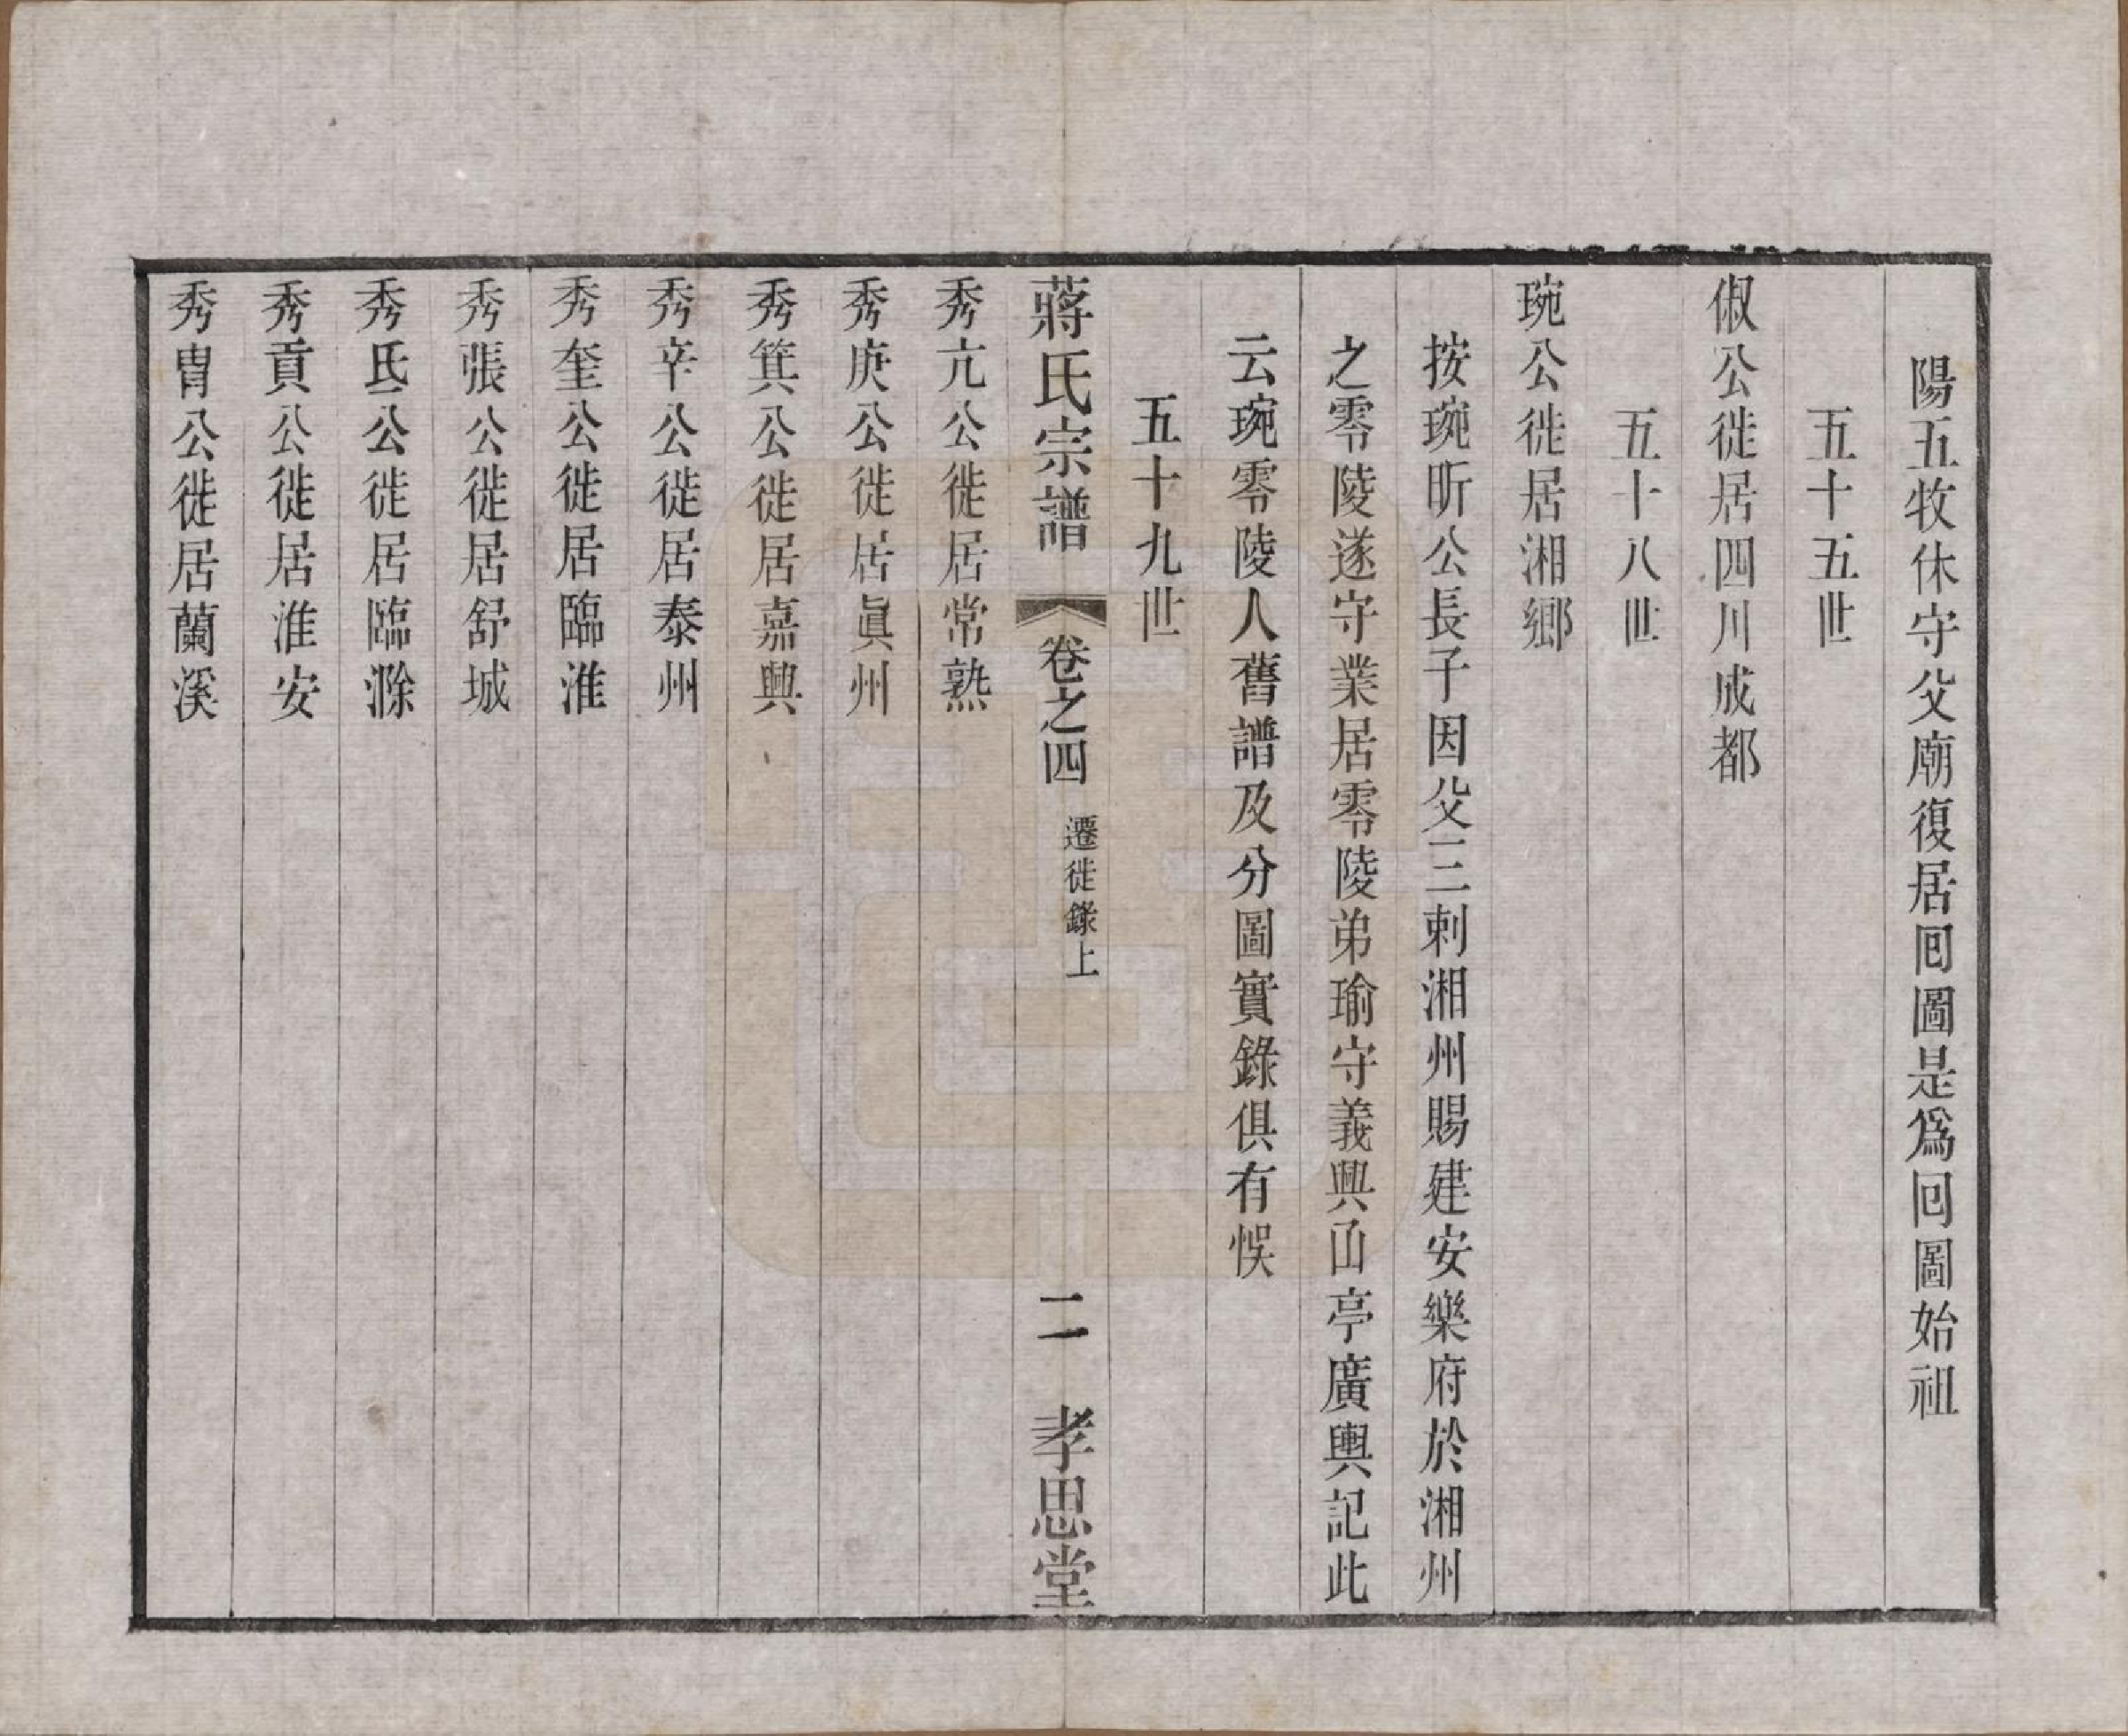 陽五牧休守父廟復居囘圖是爲囘圖始祖
五十五世
俶公徙居四川成都
五十八世
琬公徙居湘鄉
按琬昕公長子因父三刺湘州賜建安樂府於湘州
之零陵遂守業居零陵弟瑜守義興㓋亭廣輿記此
云琬零陵人舊譜及分圖實錄俱有悞
五十九世
蔣氏宗譜 卷之四 遷徙錄上 二 孝思堂
秀亢公徙居常熟
秀庚公徙居眞州
秀箕公徙居嘉興
秀辛公徙居泰州
秀奎公徙居臨淮
秀張公徙居舒城
秀氐公徙居臨滁
秀貢公徙居淮安
秀胄公徙居蘭溪